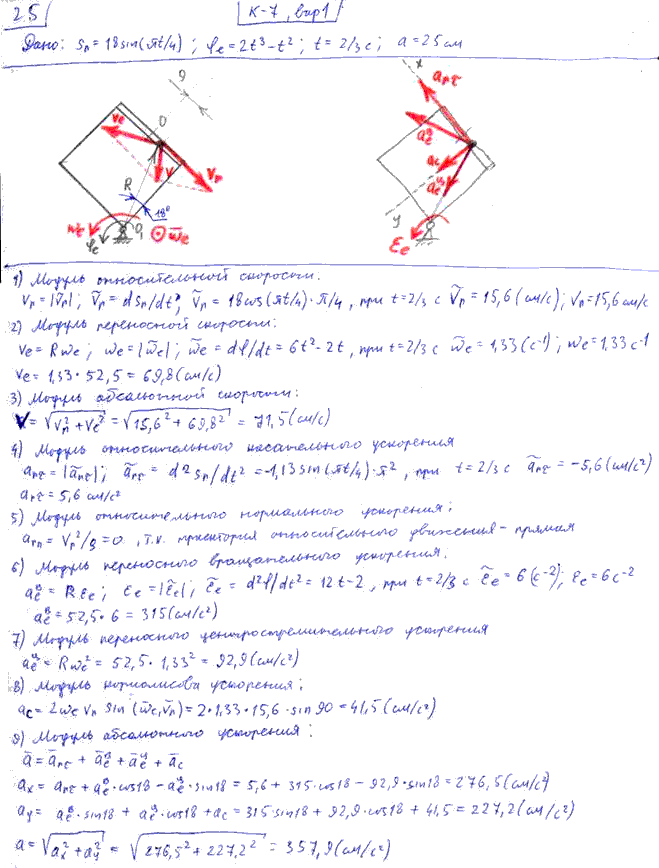 25
К-7, вар1
Дано: Sr = 18sin(πt/4); φe = 2t³-t²; t = 2/3 c; a = 25 см
9
ve
O
v
vr
R
18°
we
φe
O1
ω̄e
x
arτ
aeв
ac
aeц
y
εe
1) Модуль относительной скорости:
Vr = |Ṽr|; Ṽr = dSr/dt; Ṽr = 18cos(πt/4)·π/4, при t=2/3 c Ṽr = 15,6 (см/с); Vr = 15,6 см/с
2) Модуль переносной скорости:
ve = Rωe; ωe = |ω̃e|; ω̃e = dφ/dt = 6t²-2t, при t=2/3 c ω̃e = 1,33 (c⁻¹); ωe = 1,33 c⁻¹
ve = 1,33·52,5 = 69,8 (см/с)
3) Модуль абсолютной скорости:
V = √(Vr²+Ve²) = √(15,6²+69,8²) = 71,5 (см/с)
4) Модуль относительного касательного ускорения
arτ = |ãrτ|; ãrτ = d²Sr/dt² = -1,13sin(πt/4)·π², при t=2/3 c ãrτ = -5,6 (см/с²)
arτ = 5,6 см/с²
5) Модуль относительного нормального ускорения:
arn = Vr²/ρ = 0, т.к. траектория относительного движения - прямая
6) Модуль переносного вращательного ускорения.
aeв = Rεe; εe = |ε̃e|; ε̃e = d²φ/dt² = 12t-2, при t=2/3 c ε̃e = 6 (c⁻²); εe = 6 c⁻²
aeв = 52,5·6 = 315 (см/с²)
7) Модуль переносного центростремительного ускорения
aeц = Rωe² = 52,5·1,33² = 92,9 (см/с²)
8) Модуль кориолисова ускорения:
ac = 2ωe vr sin(ω̄e,v̄r) = 2·1,33·15,6·sin90 = 41,5 (см/с²)
9) Модуль абсолютного ускорения:
ā = ārτ + āeв + āeц + āc
ax = arτ + aeв·cos18 - aeц·sin18 = 5,6 + 315·cos18 - 92,9·sin18 = 276,5 (см/с²)
ay = aeв·sin18 + aeц·cos18 + ac = 315sin18 + 92,9·cos18 + 41,5 = 227,2 (см/с²)
a = √(ax²+ay²) = √(276,5²+227,2²) = 357,9 (см/с²)